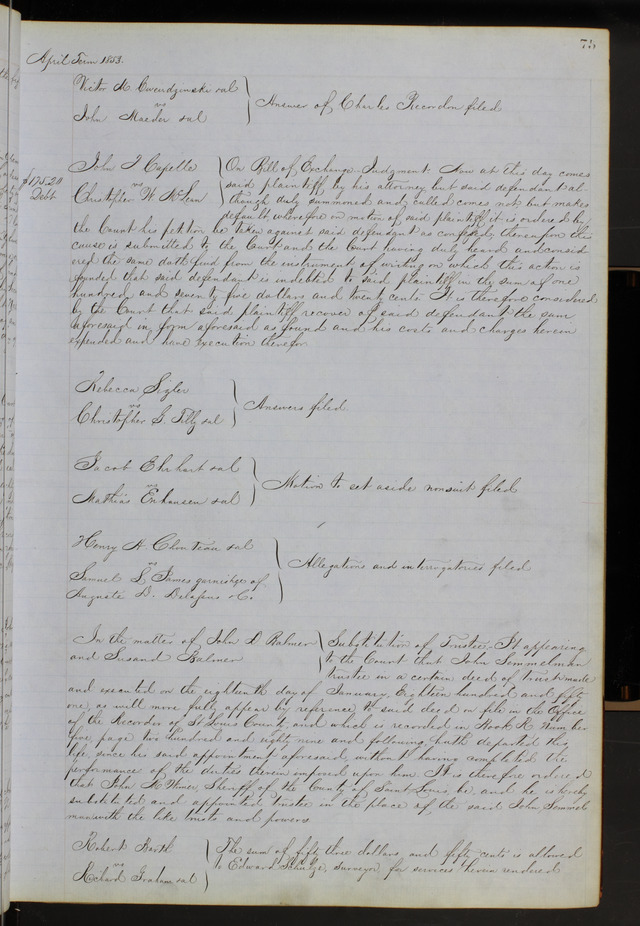 75
April Term 1853.
Victor M Cwendzinski et al
vs
John Maeder et al
Answer of Charles Recordon filed
$175.20
Debt
John J Capelle
vs
Christopher W McLean
On Bill of Exchange. Judgment Now at this day comes
said plaintiff by his attorney but said defendant al-
though duly summoned and called comes not but makes
default wherefore on motion of said plaintiff it is ordered by
the Court his petition be taken against said defendant as confessed, thereupon this
cause is submitted to the Court and the Court having duly heard and consid
ered the same doth find from the instrument of writing on which this action is
founded that said defendant is indebted to said plaintiff in the sum of one
hundred and seventy five dollars and twenty cents It is therefore considered
by the Court that said plaintiff recover of said defendant the sum
aforesaid in form aforesaid as found and his costs and charges herein
expended and have execution therefor
Rebecca Sigler
vs
Christopher G. Tilly et al
Answers filed.
Jacob Ehrhart et al
vs
Mathias Enhausen et al
Motion to set aside nonsuit filed
Henry A Chouteau et al
vs
Samuel L James garnishee of
Auguste B. Delafens & Co.
Allegations and interrogatories filed
In the matter of John D Balmer
and Susand Balmer
Substitution of Trustee. It appearing
to the Court that John Semmelman
trustee in a certain deed of trust made
and executed on the eighteenth day of January Eighteen hundred and fifty
one, as will more fully appear by reference to said deed on file in the Office
of the Recorder of St Louis County, and which is recorded in Book K Number
five page two hundred and eighty nine and following, hath departed this
life since his said appointment aforesaid, without having completed the
performance of the duties therein imposed upon him. It is therefore ordered
that John M Wimer Sheriff of the County of Saint Louis, be and he is hereby
substituted and appointed trustee in the place of the said John Semmel
man with the like trusts and powers
Robert Barth
vs
Richard Graham et al
The sum of fifty three dollars and fifty cents is allowed
to Edward Schultze, surveyor, for services herein rendered